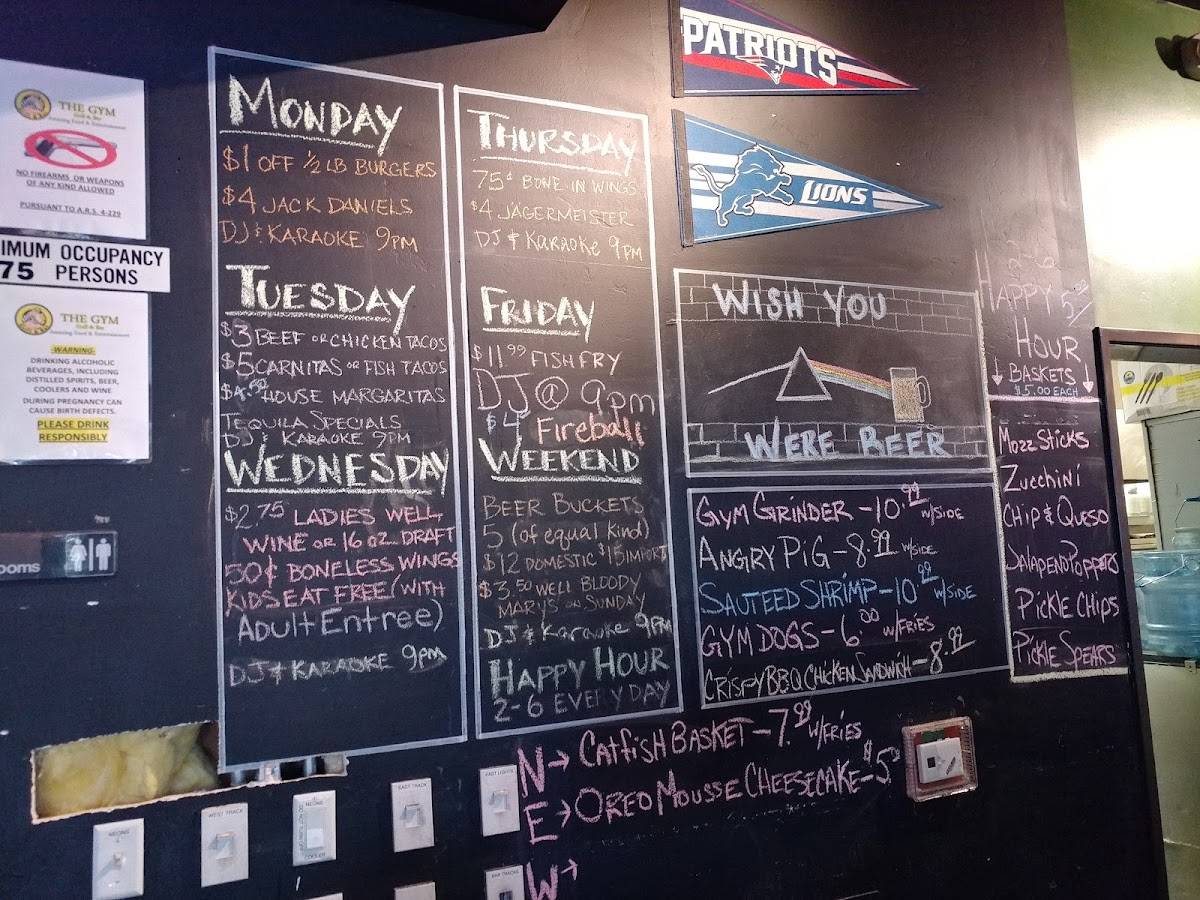 THE GYM
Grill & Bar
NO FIREARMS OR WEAPONS
OF ANY KIND ALLOWED
PURSUANT TO A.R.S. 4-229
IMUM OCCUPANCY
75 PERSONS
THE GYM
Grill & Bar
-WARNING-
DRINKING ALCOHOLIC
BEVERAGES, INCLUDING
DISTILLED SPIRITS, BEER,
COOLERS AND WINE
DURING PREGNANCY CAN
CAUSE BIRTH DEFECTS.
PLEASE DRINK
RESPONSIBLY
ooms
MONDAY
$1 OFF ½ LB BURGERS
$4 JACK DANIELS
DJ & KARAOKE 9PM
TUESDAY
$3 BEEF OR CHICKEN TACOS
$5 CARNITAS OR FISH TACOS
HOUSE MARGARITAS
TEQUILA SPECIALS
DJ & KARAOKE 9PM
WEDNESDAY
$2.75 LADIES WELL
WINE OR 16 OZ. DRAFT
50¢ BONELESS WINGS
KIDS EAT FREE (WITH
Adult Entree)
DJ & KARAOKE 9PM
THURSDAY
75¢ BONE-IN WINGS
$4 JÄGERMEISTER
DJ & Karaoke 9PM
FRIDAY
$11.99 FISH FRY
DJ @ 9pm
$4 Fireball
WEEKEND
BEER BUCKETS
5 (of equal kind)
$12 DOMESTIC $15 IMPORT
$3.50 WELL BLOODY
MARYS ON SUNDAY
DJ & Karaoke 9PM
HAPPY HOUR
2-6 EVERY DAY
PATRIOTS
LIONS
WISH YOU
WERE BEER
GYM GRINDER - 10.99 w/SIDE
ANGRY PIG - 8.99 w/SIDE
SAUTEED SHRIMP - 10.99 w/SIDE
GYM DOGS - 6.00 w/FRIES
CRISPY BBQ CHICKEN SANDWICH - 8.99
2-6
HAPPY
HOUR
BASKETS
$5.00 EACH
MOZZ STICKS
ZUCCHINI
CHIP & QUESO
JALAPENO POPPERS
PICKLE CHIPS
PICKLE SPEARS
N→ CATFISH BASKET - 7.99 w/FRIES
E→ OREO MOUSSE CHEESECAKE -
W→
NEONS
WEST TRACK
NEONS
DO NOT TURN OFF
COOLER
EAST TRACK
EAST LIGHTS
BAR TRACKS